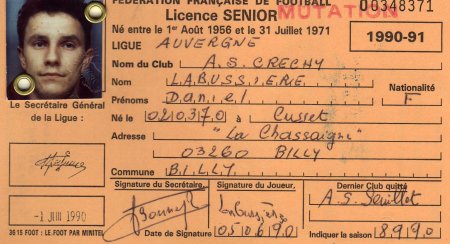 FÉDÉRATION FRANÇAISE DE FOOTBALL
Licence SENIOR
MUTATION
00348371
Né entre le 1er Août 1956 et le 31 Juillet 1971
LIGUE AUVERGNE
1990-91
Nom du Club A.S. CRECHY
Nom LABUSSIERE
Nationalité
Prénoms Daniel
F
Né le 020370 à Cusset
Adresse "La Chassaigne"
03260 BILLY
Commune BILLY
Le Secrétaire Général
de la Ligue :
-1 JUI 1990
3615 FOOT : LE FOOT PAR MINITEL
Signature du Secrétaire
Signature du Joueur
Date de Signature 050690
Dernier Club quitté
A.S.
Indiquer la saison 8990